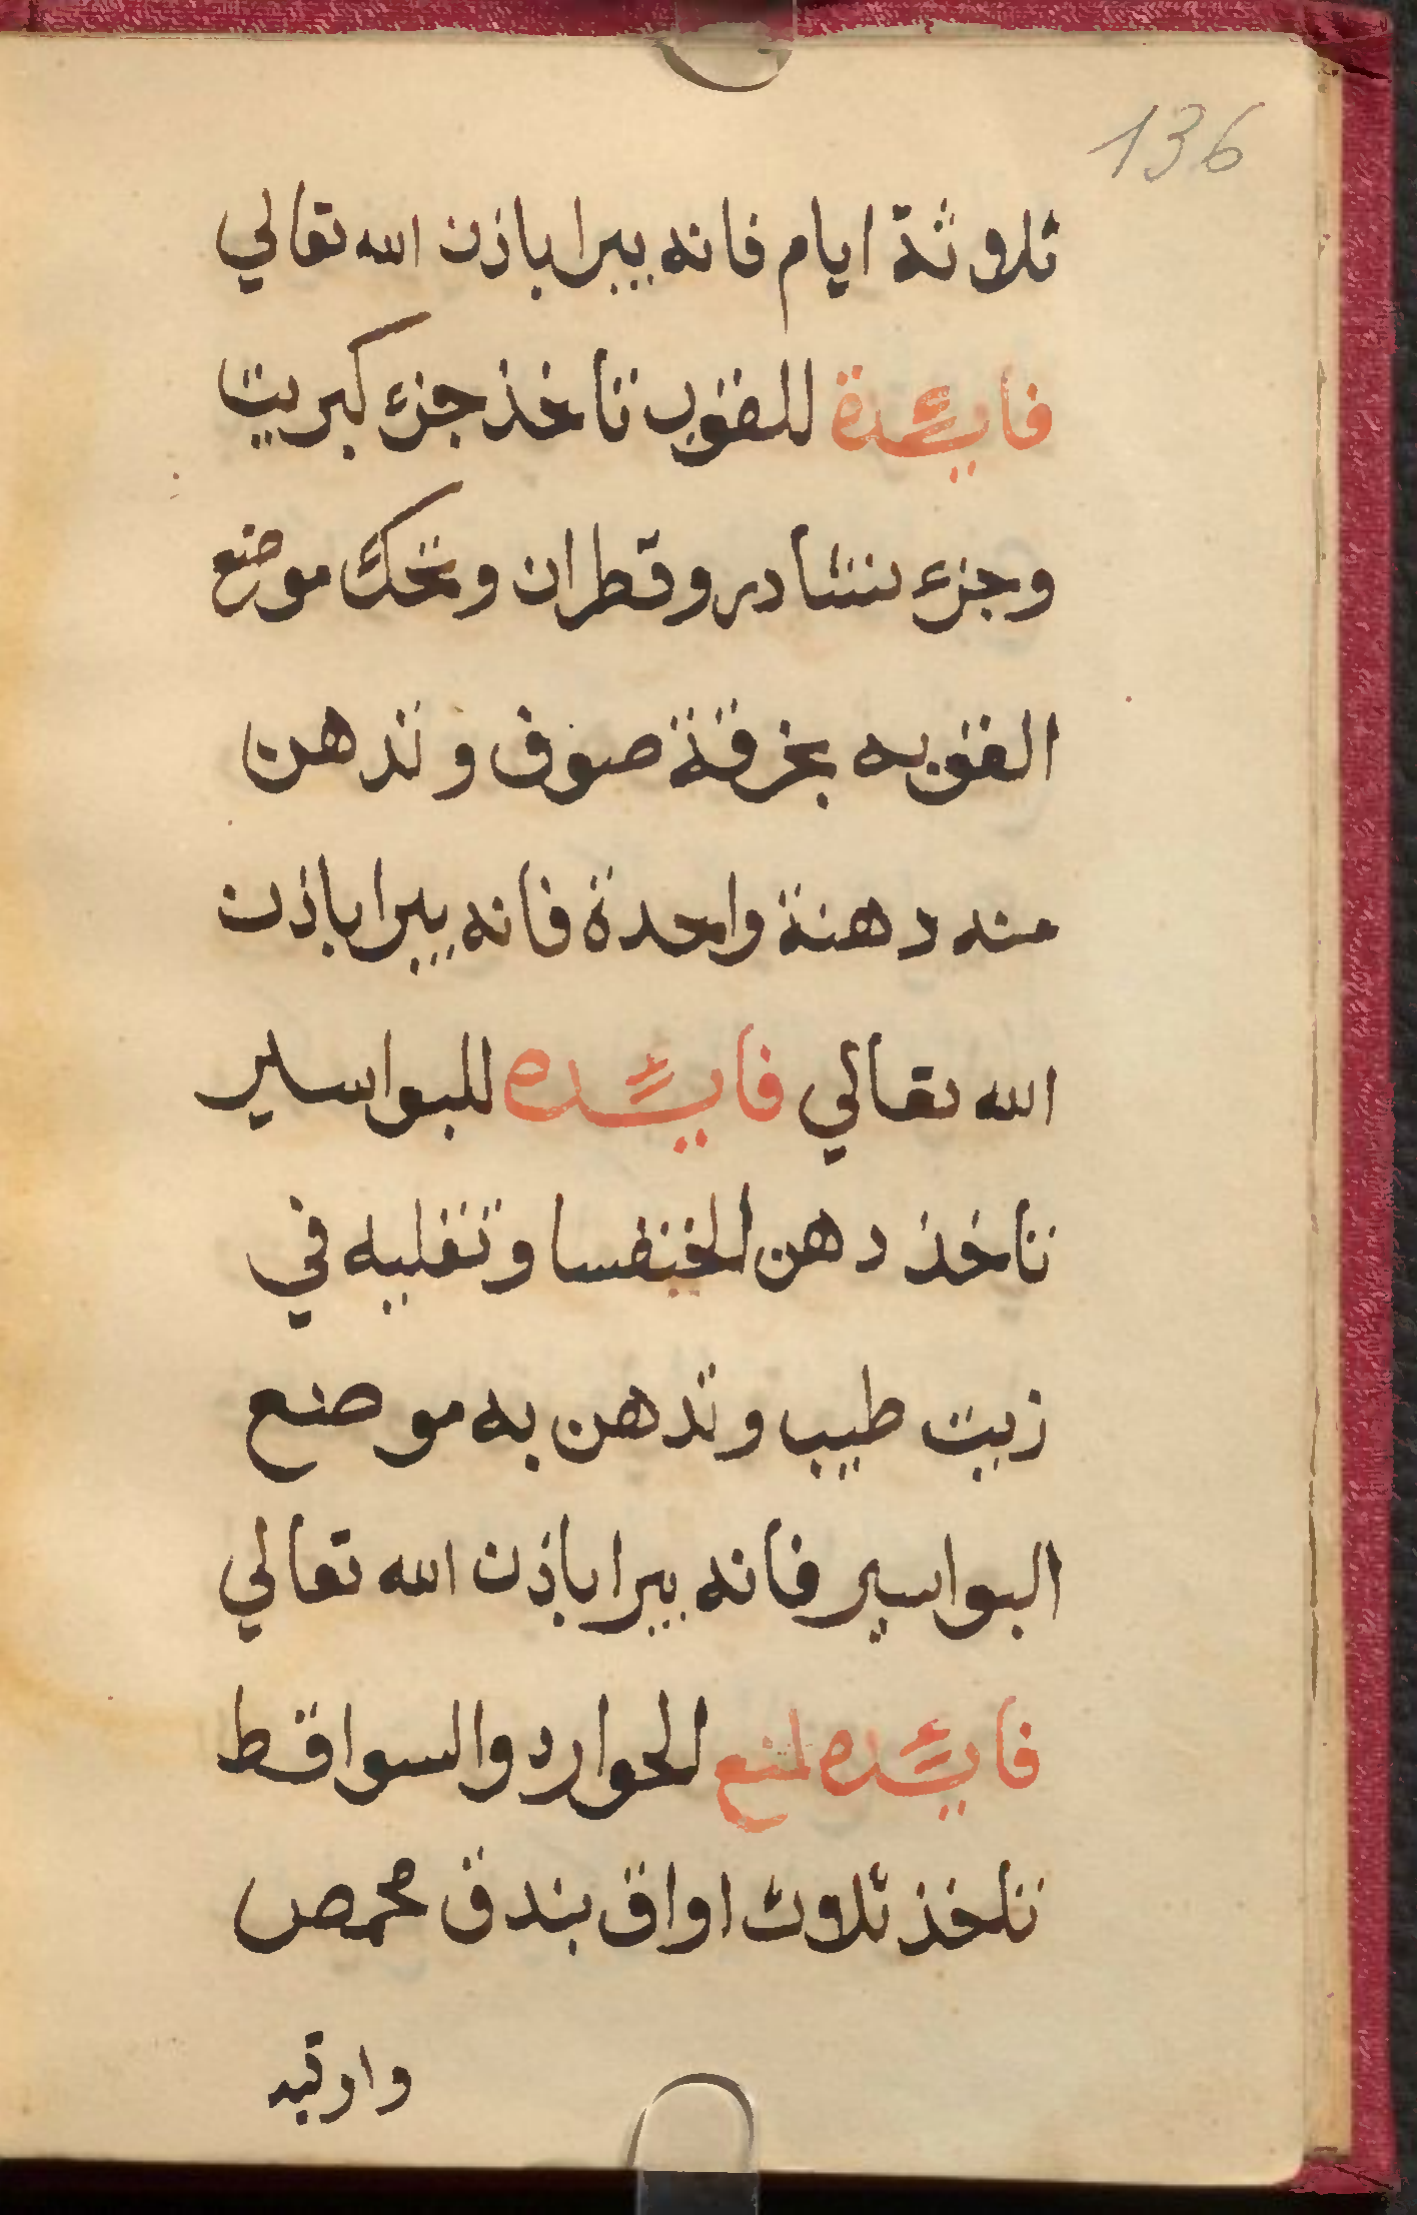 136
ثلاوثة ايام فانه يبرا باذن الله تعالي
فايئدة للقوب تاخذ جزء كبريت
وجزء نشادر وقطران وتحك موضع
القوبه بخرقة صوف وتدهن
منه دهنة واحدة فانه يبرا باذن
الله تعالي فايئده للبواسير
تاخذ دهن الخنفسا وتغليه في
زيت طيب وتدهن به موضع
البواسير فانه يبرا باذن الله تعالي
فايئده لمنع الحوارد والسواقط
تاخذ ثلاوث اواق بندق محمص
واوقيه